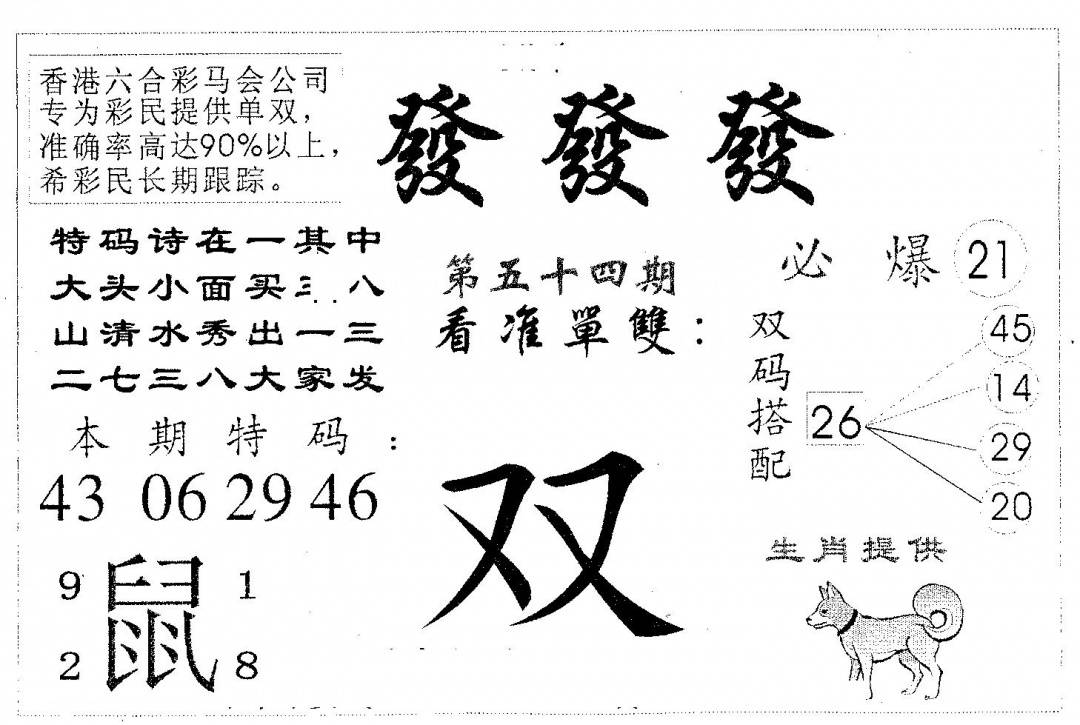 香港六合彩马会公司
专为彩民提供单双，
准确率高达90%以上，
希彩民长期跟踪。
發發發
特码诗在一其中
大头小面买三八
山清水秀出一三
二七三八大家发
第五十四期
看准單雙：
双
必爆 21
双码搭配
26
45
14
29
20
本期特码：
43 06 29 46
9 鼠 1
2 8
生肖提供